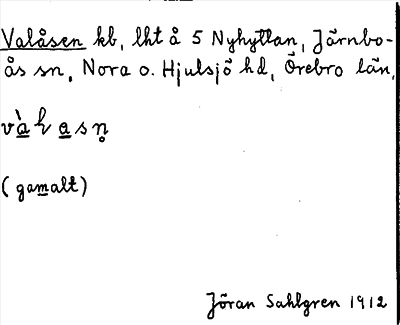 Valåsen kb, lht å 5 Nyhyttan, Järnbo-
ås sn, Nora o. Hjulsjö hd, Örebro län.
(gamalt)
Jöran Sahlgren 1912